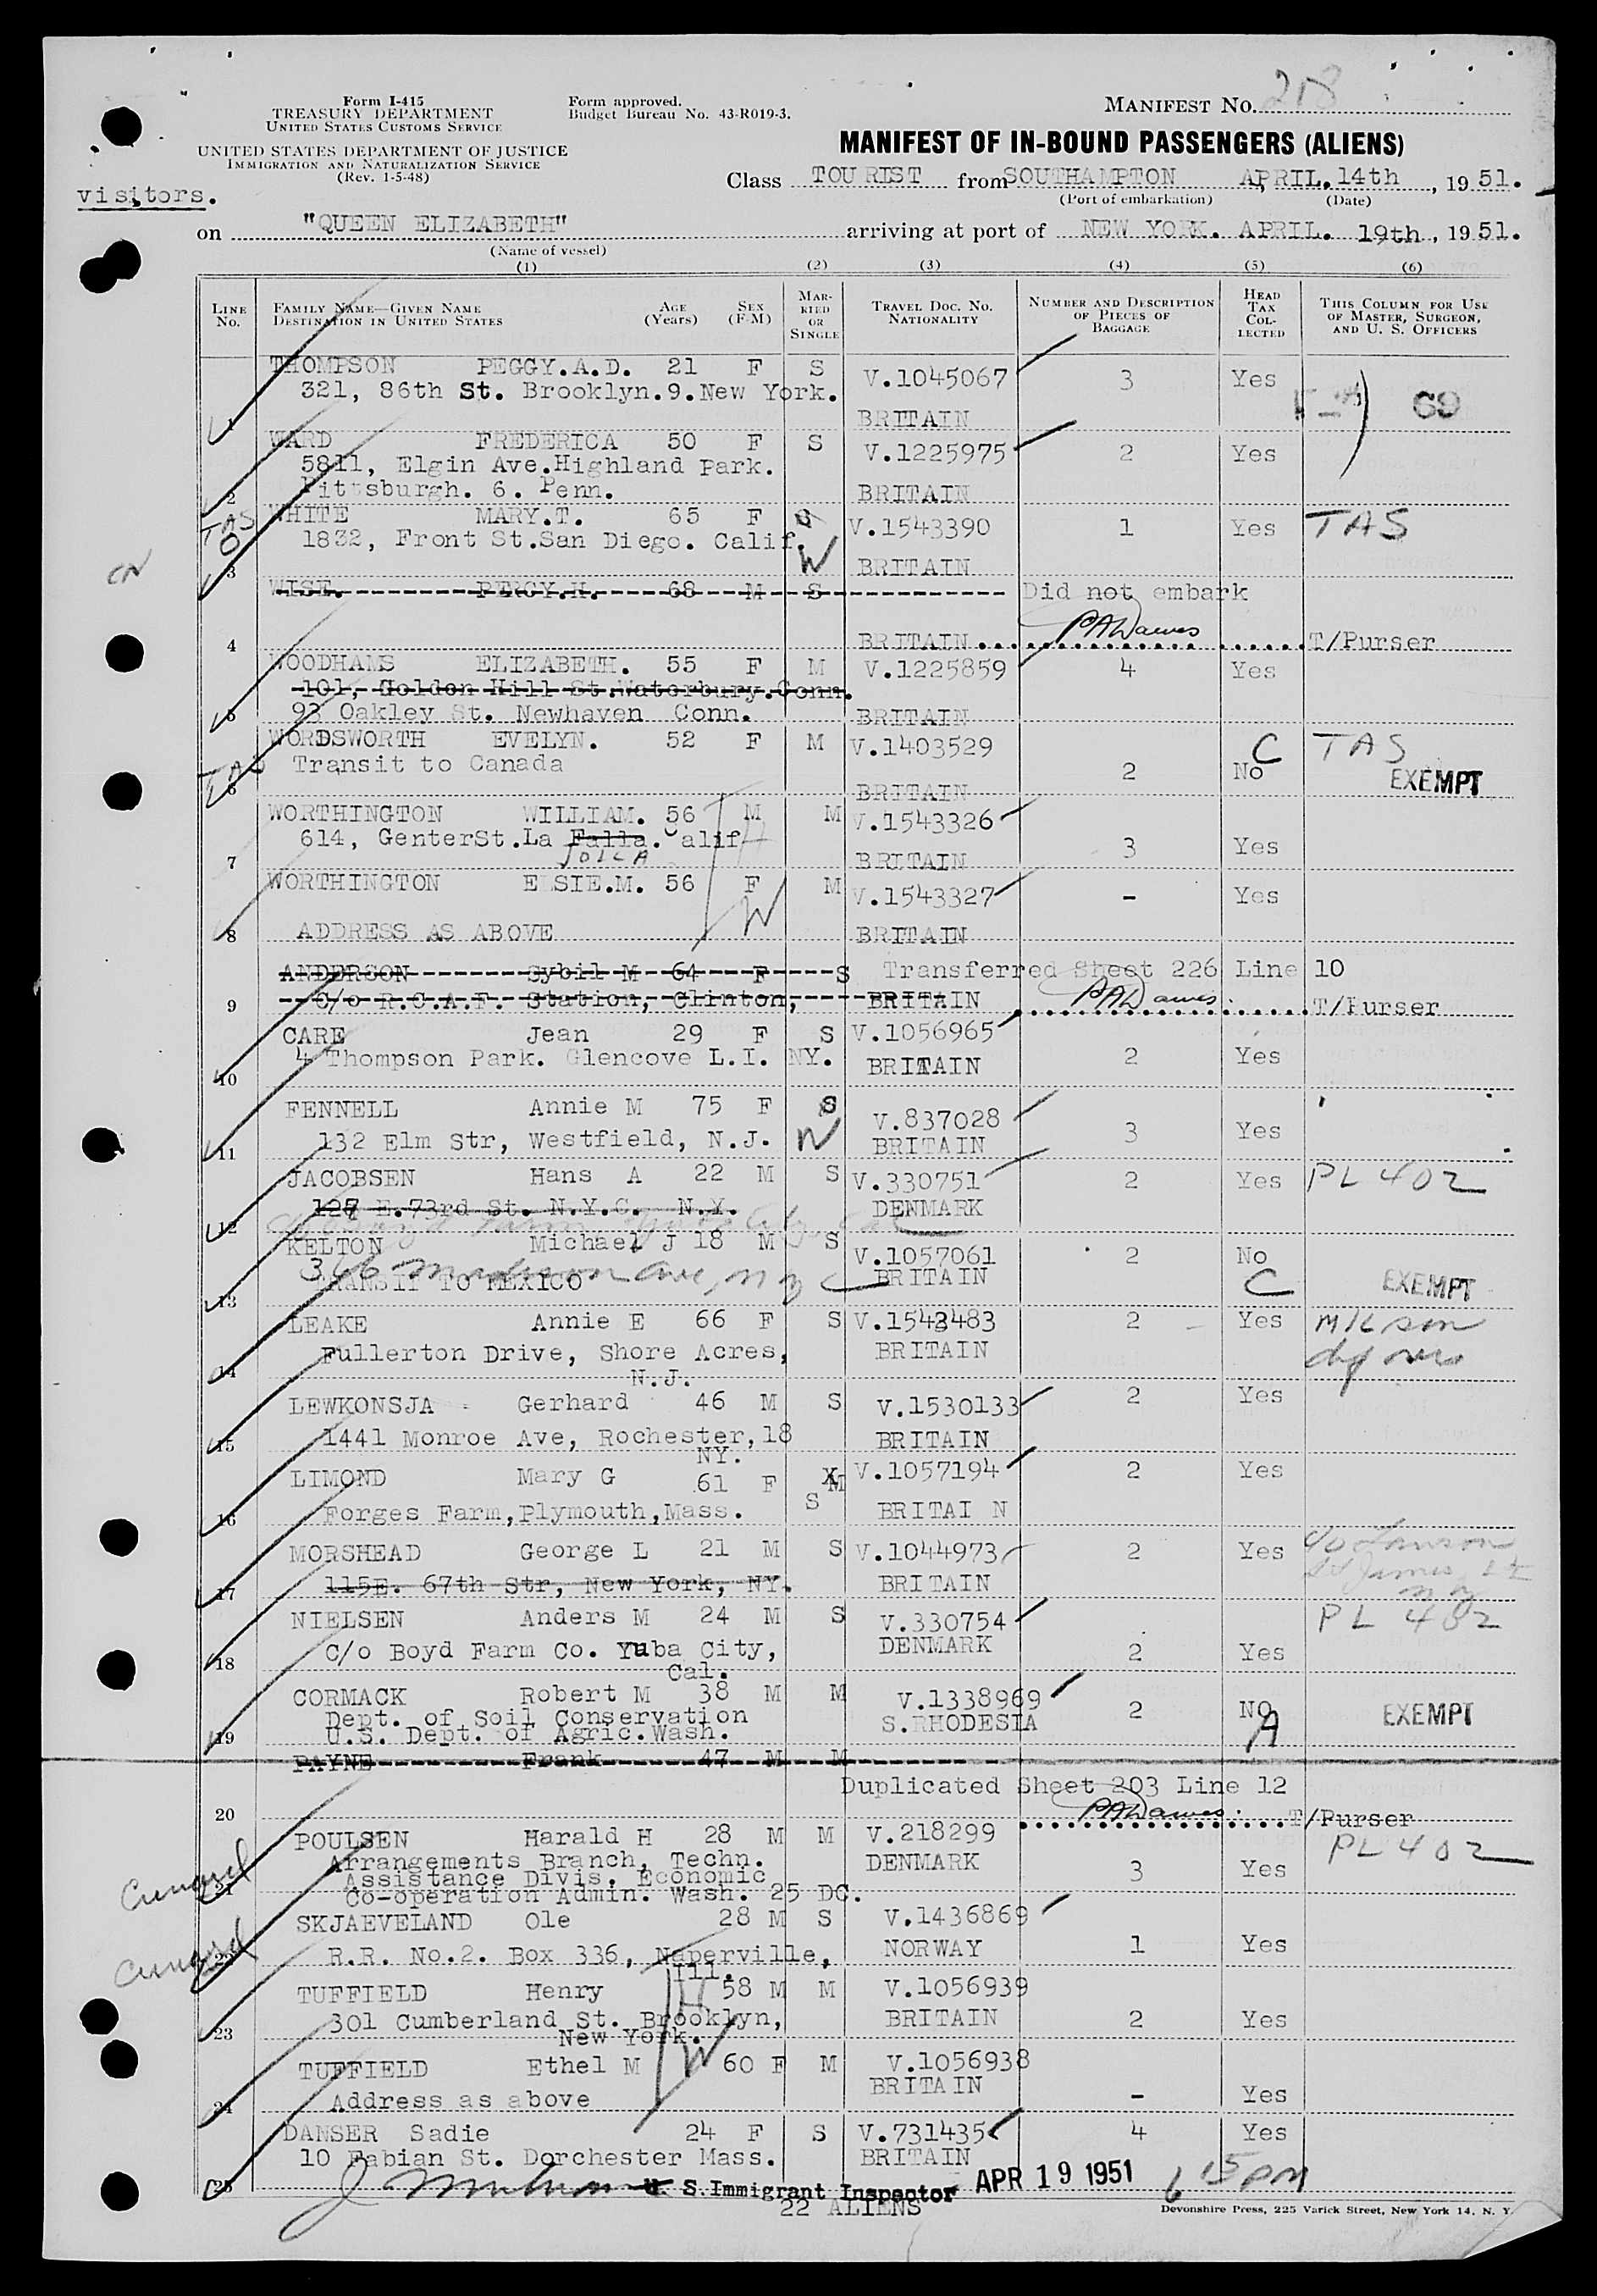 Form I-415
TREASURY DEPARTMENT
UNITED STATES CUSTOMS SERVICE
UNITED STATES DEPARTMENT OF JUSTICE
IMMIGRATION AND NATURALIZATION SERVICE
(Rev. 1-5-48)
Form approved.
Budget Bureau No. 43-R019-3.
MANIFEST NO. 218
MANIFEST OF IN-BOUND PASSENGERS (ALIENS)
Class TOURIST from SOUTHAMPTON APRIL. 14th, 1951.
(Port of embarkation) (Date)
visitors.
on "QUEEN ELIZABETH" arriving at port of NEW YORK. APRIL. 19th, 1951.
(Name of vessel)
(1) (2) (3) (4) (5) (6)
LINE NO. FAMILY NAME—GIVEN NAME DESTINATION IN UNITED STATES AGE (Years) SEX (F-M) MARRIED OR SINGLE TRAVEL DOC. NO. NATIONALITY NUMBER AND DESCRIPTION OF PIECES OF BAGGAGE HEAD TAX COLLECTED THIS COLUMN FOR USE OF MASTER, SURGEON, AND U. S. OFFICERS
THOMPSON PEGGY.A.D. 21 F S V.1045067 3 Yes
321, 86th St. Brooklyn.9.New York. 69
1 BRITAIN
WARD FREDERICA 50 F S V.1225975 2 Yes
5811, Elgin Ave.Highland Park.
2 Pittsburgh. 6. Penn. BRITAIN
TAS WHITE MARY.T. 65 F S V.1543390 1 Yes TAS
1832, Front St.San Diego. Calif. W
3 BRITAIN
WISE. PERCY.H. 68 M S Did not embark
4 BRITAIN PADawes T/Purser
WOODHAMS ELIZABETH. 55 F M V.1225859 4 Yes
101, Golden Hill St.Waterbury.Conn.
5 93 Oakley St. Newhaven Conn. BRITAIN
WORDSWORTH EVELYN. 52 F M V.1403529 C TAS
TAS Transit to Canada 2 No EXEMPT
6 BRITAIN
WORTHINGTON WILLIAM. 56 M M V.1543326
614, GenterSt.La Falla. Calif H 3 Yes
7 JOLLA BRITAIN
WORTHINGTON ELSIE.M. 56 F M V.1543327 - Yes
W
8 ADDRESS AS ABOVE BRITAIN
ANDERSON Sybil M 64 F S Transferred Sheet 226 Line 10
9 C/o R.C.A.F. Station, Clinton, BRITAIN PADawes. T/Purser
CARE Jean 29 F S V.1056965
10 4 Thompson Park. Glencove L.I. NY. BRITAIN 2 Yes
FENNELL Annie M 75 F S V.837028
11 132 Elm Str, Westfield, N.J. W BRITAIN 3 Yes
JACOBSEN Hans A 22 M S V.330751 2 Yes PL 402
127 E.73rd St. N.Y.C. N.Y. DENMARK
12 c/o Boyd Farm Yuba City Cal
KELTON Michael J 18 M S V.1057061 2 No
366 Madison Ave, N Y C
13 TRANSIT TO MEXICO BRITAIN C EXEMPT
LEAKE Annie E 66 F S V.1543483 2 Yes
14 Fullerton Drive, Shore Acres, BRITAIN
N.J.
LEWKONSJA Gerhard 46 M S V.1530133 2 Yes
15 1441 Monroe Ave, Rochester,18 BRITAIN
NY.
LIMOND Mary G 61 F M V.1057194 2 Yes
16 Forges Farm,Plymouth,Mass. S BRITAI N
MORSHEAD George L 21 M S V.1044973 2 Yes c/o Lawson
17 115E. 67th Str, New York, NY. BRITAIN St James L I
N Y
NIELSEN Anders M 24 M S V.330754 PL 402
18 C/o Boyd Farm Co. Yuba City, DENMARK 2 Yes
Cal.
CORMACK Robert M 38 M M V.1338969 2 NO EXEMPT
Dept. of Soil Conservation S.RHODESIA A
19 U.S. Dept. of Agric.Wash.
PAYNE Frank 47 M M
Duplicated Sheet 203 Line 12
20 PADawes. T/Purser
POULSEN Harald H 28 M M V.218299 PL 402
Arrangements Branch, Techn. DENMARK 3 Yes
Cunard 21 Assistance Divis, Economic
Co-operation Admin. Wash. 25 DC.
SKJAEVELAND Ole 28 M S V.1436869
Cunard 22 R.R. No.2. Box 336, Naperville, NORWAY 1 Yes
Ill.
TUFFIELD Henry 58 M M V.1056939
H
23 301 Cumberland St. Brooklyn, BRITAIN 2 Yes
New York.
TUFFIELD Ethel M W 60 F M V.1056938
24 Address as above BRITAIN - Yes
DANSER Sadie 24 F S V.731435 4 Yes
10 Fabian St. Dorchester Mass. BRITAIN
25 U. S. Immigrant Inspector APR 19 1951 6 15 PM
22 ALIENS
Devonshire Press, 225 Varick Street, New York 14, N. Y.